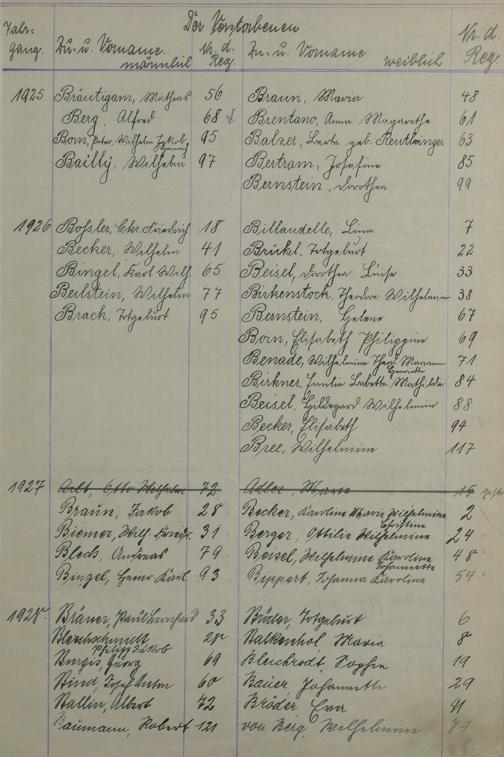 Der Verstorbenen
Jahr-gang. Zu- u. Vorname. männlich Nr. d. Reg. Zu- u. Vorname weiblich Nr. d. Reg.
1925 Bräutigam, Mathias 56 Braun, Maria 48
Berg, Alfred 68 Brentano, Anna Margarethe 61
Born, Peter Wilhelm Jakob 95 Balzer, Berta geb. Reutlinger 63
Bailly, Wilhelm 97 Bertram, Josefine 85
Bernstern, Dorothea 99
1926 Bossler, Chr. Friedrich 18 Billaudelle, Lina 7
Becker, Wilhelm 41 Brückl, Totgeburt 22
Bingel, Karl Wilh. 65 Beisel, Dorothea Luise 33
Beilstein, Wilhelm 77 Birkenstock, Theodore Wilhelmine 38
Brack, Totgeburt 95 Bernstein, Helene 67
Born, Elisabeth Philippine 69
Benade, Wilhelmine Ther. Marianne Henriette 71
Birkner, Emilie Babette Mathilde 84
Beisel, Hildegard Wilhelmine 88
Becker, Elisabeth 94
Bree, Wilhelmine 117
1927 Adt, Otto Wilhelm 72 Adler, Marie 15
Braun, Jakob 28 Becker, Karoline Maria Wilhelmine Christine 2
Biemer, Wilh. Friedr. 31 Berger, Ottilie Wilhelmine 24
Blech, Andreas 79 Beisel, Wilhelmine Karoline Johannette 48
Bingel, Heinr. Karl 93 Bippert, Johanna Karoline 54
1928. Bräuer, Paul Bernhard 33 Bröder, Totgeburt 6
Blechschmidt, Philipp Jakob 28 Balkenhol, Maria 8
Burgis, Georg 69 Bleckrodt Sophie 19
Bund, Josef Anton 60 Bauer, Johannette 29
Ballin, Albert 72 Bröder Eva 41
Baumann, Robert 121 von Berg, Wilhelmine 79